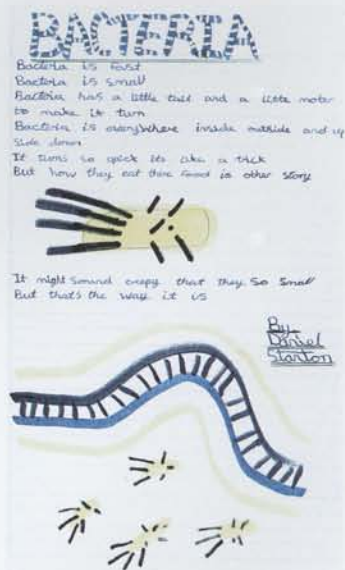 BACTERIA
Bacteria is fast
Bacteria is small
Bacteria has a little tail and a little moter
to make it turn
Bacteria is everywhere inside outside and up
side down
It turns so quick its like a trick
But how they eat there food is other story
It might sound creepy that they so small
But that's the way it is
By
Daniel
Stanton